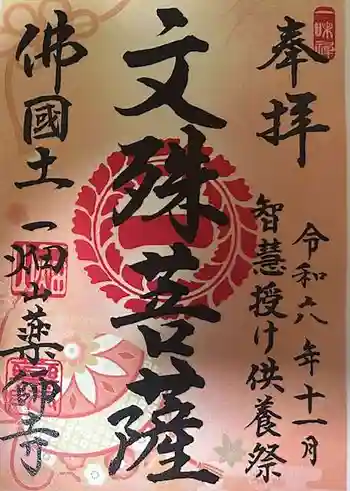 奉拝
令和六年十一月
智慧授け供養祭
文殊菩薩
佛國土
一畑山薬師寺